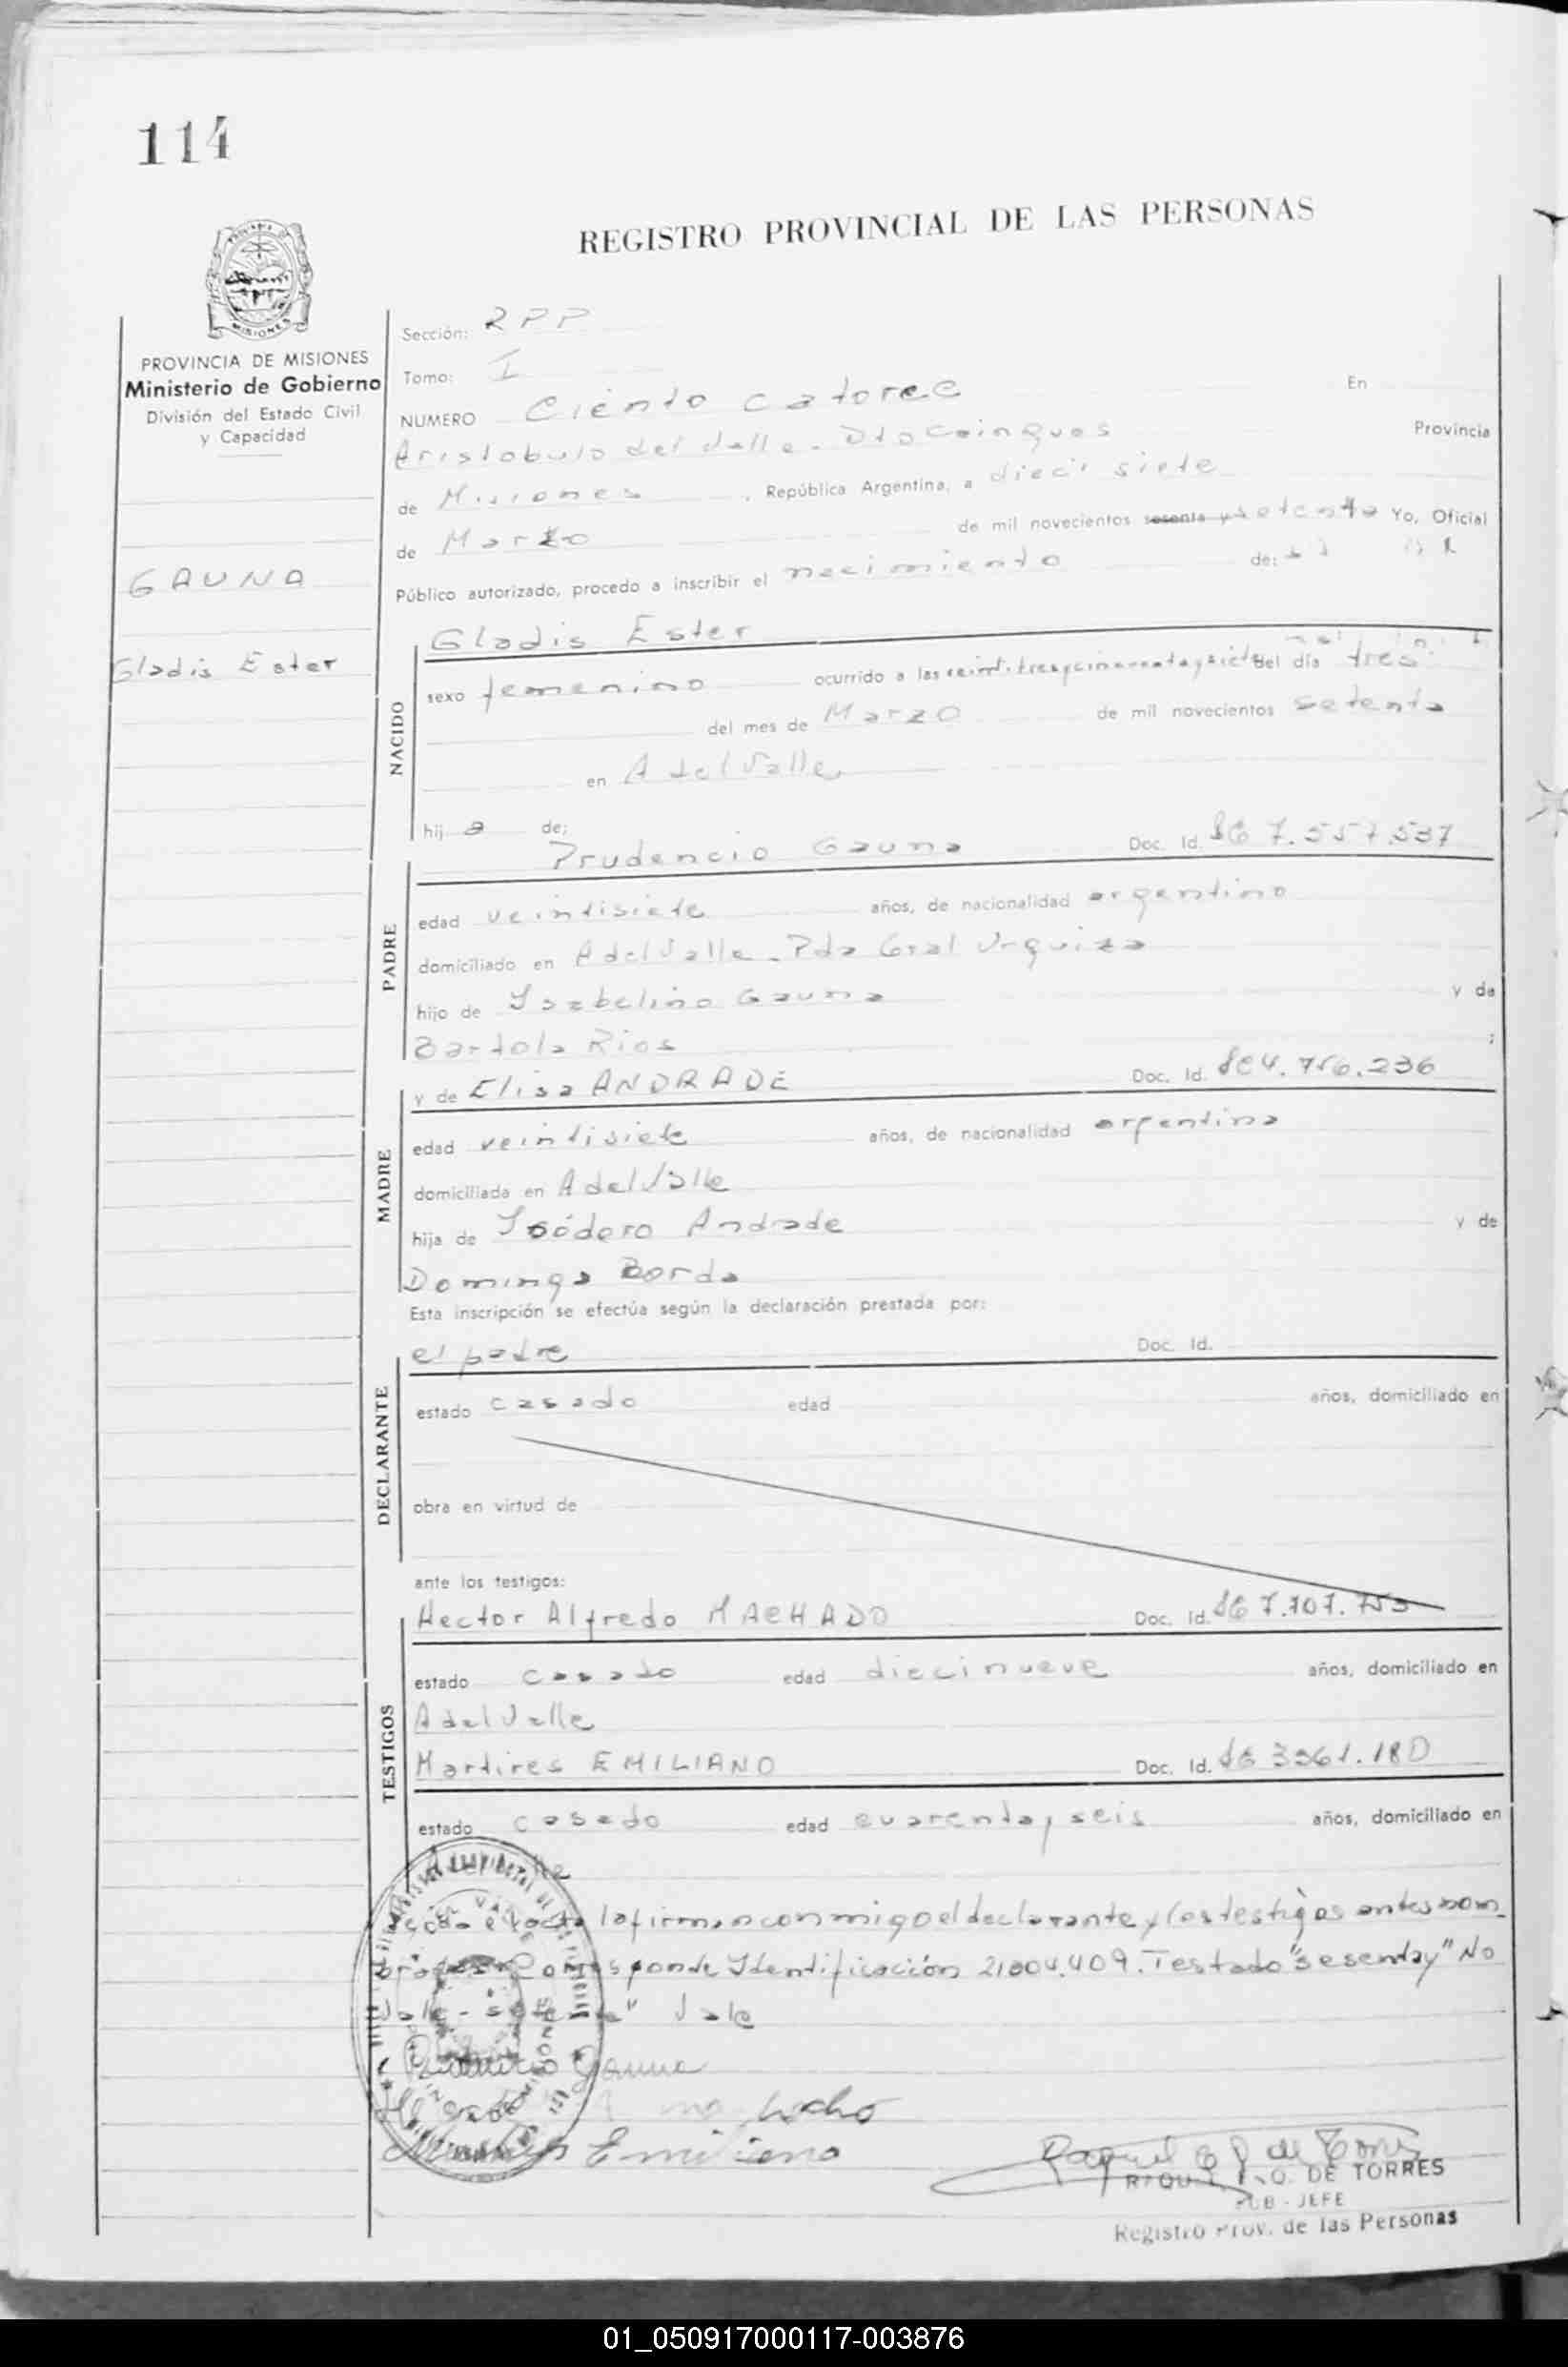 114
REGISTRO PROVINCIAL DE LAS PERSONAS
MISIONES
PROVINCIA DE MISIONES
Ministerio de Gobierno
División del Estado Civil
y Capacidad
GAUNA
Gladis Ester
Sección: RPP
Tomo: I
NUMERO Ciento catorce En
Aristobulo del Valle - Dto Cainguas Provincia
de Misiones , República Argentina, a dieci siete
de Marzo de mil novecientos sesenta y setenta Yo, Oficial
Público autorizado, procedo a inscribir el nacimiento de:
NACIDO
Gladis Ester
sexo femenino ocurrido a las veintitres y cincuenta y siete del día tres
del mes de Marzo de mil novecientos setenta
en A del Valle
hij a de:
PADRE
Prudencio Gauna Doc. Id. 7.557.537
edad veintisiete años, de nacionalidad argentino
domiciliado en A del Valle - Pda Gral Urquiza
hijo de Isabelino Gauna y de
Bartola Rios ;
MADRE
y de Elisa ANDRADE Doc. Id.
edad veintisiete años, de nacionalidad argentina
domiciliada en A del Valle
hija de Isódoro Andrade y de
Dominga Borda
Esta inscripción se efectúa según la declaración prestada por:
DECLARANTE
el padre Doc. Id.
estado casado edad años, domiciliado en
obra en virtud de
ante los testigos:
TESTIGOS
Hector Alfredo MACHADO Doc. Id.
estado casado edad diecinueve años, domiciliado en
A del Valle
Martires EMILIANO Doc. Id.
estado casado edad cuarenta y seis años, domiciliado en
la firman conmigo el declarante y los testigos antes nom-
Corresponde Identificación 21.004.409. Testado "sesenta y" No
Vale - setenta" Vale
Prudencio Gauna
Machado
Martires Emiliano
DE TORRES
SUB - JEFE
Registro Prov. de las Personas
01_050917000117-003876